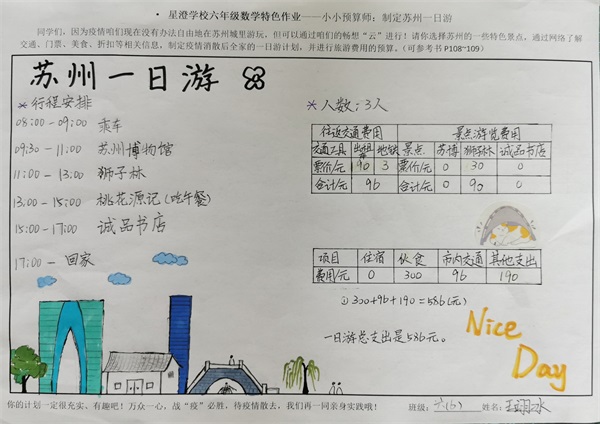 · 星澄学校六年级数学特色作业——小小预算师：制定苏州一日游
同学们，因为疫情咱们现在没有办法自由地在苏州城里游玩，但可以通过咱们的畅想“云”进行！请你选择苏州的一些特色景点，通过网络了解
交通、门票、美食、折扣等相关信息，制定疫情消散后全家的一日游计划，并进行旅游费用的预算。（可参考书 P108~109）
苏州一日游
行程安排
08:00-09:00 乘车
09:30-11:00 苏州博物馆
11:00-13:00 狮子林
13:00-15:00 桃花源记(吃午餐)
15:00-17:00 诚品书店
17:00- 回家
人数:3人
往返交通费用 景点游览费用
交通工具 出租 地铁 景点 苏博 狮子林 诚品书店
票价/元 90 3 票价/元 0 30 0
合计/元 96 合计/元 0 90 0
项目 住宿 伙食 市内交通 其他支出
费用/元 0 300 96 190
①300+96+190=586(元)
一日游总支出是586元。
Nice
Day
你的计划一定很充实、有趣吧！万众一心，战“疫”必胜，待疫情散去，我们再一同亲身实践哦！
班级: 六(6) 姓名: